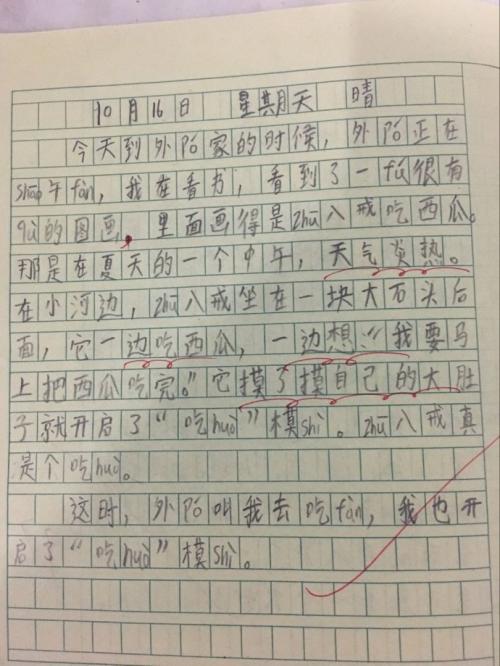 10月16日 星期天 晴
今天到外Pó家的时候,外Pó正在
shāo午fàn,我在看书,看到了一fú很有
qù的图画,里面画得是zhū八戒吃西瓜。
那是在夏天的一个中午,天气炎热。
在小河边,zhū八戒坐在一块大石头后
面,它一边吃西瓜,一边想:“我要马
上把西瓜吃完。”它摸了摸自己的大肚
子就开启了“吃huò”模shì。zhū八戒真
是个吃huò。
这时,外Pó叫我去吃fàn,我也开
启了“吃huò”模shì。